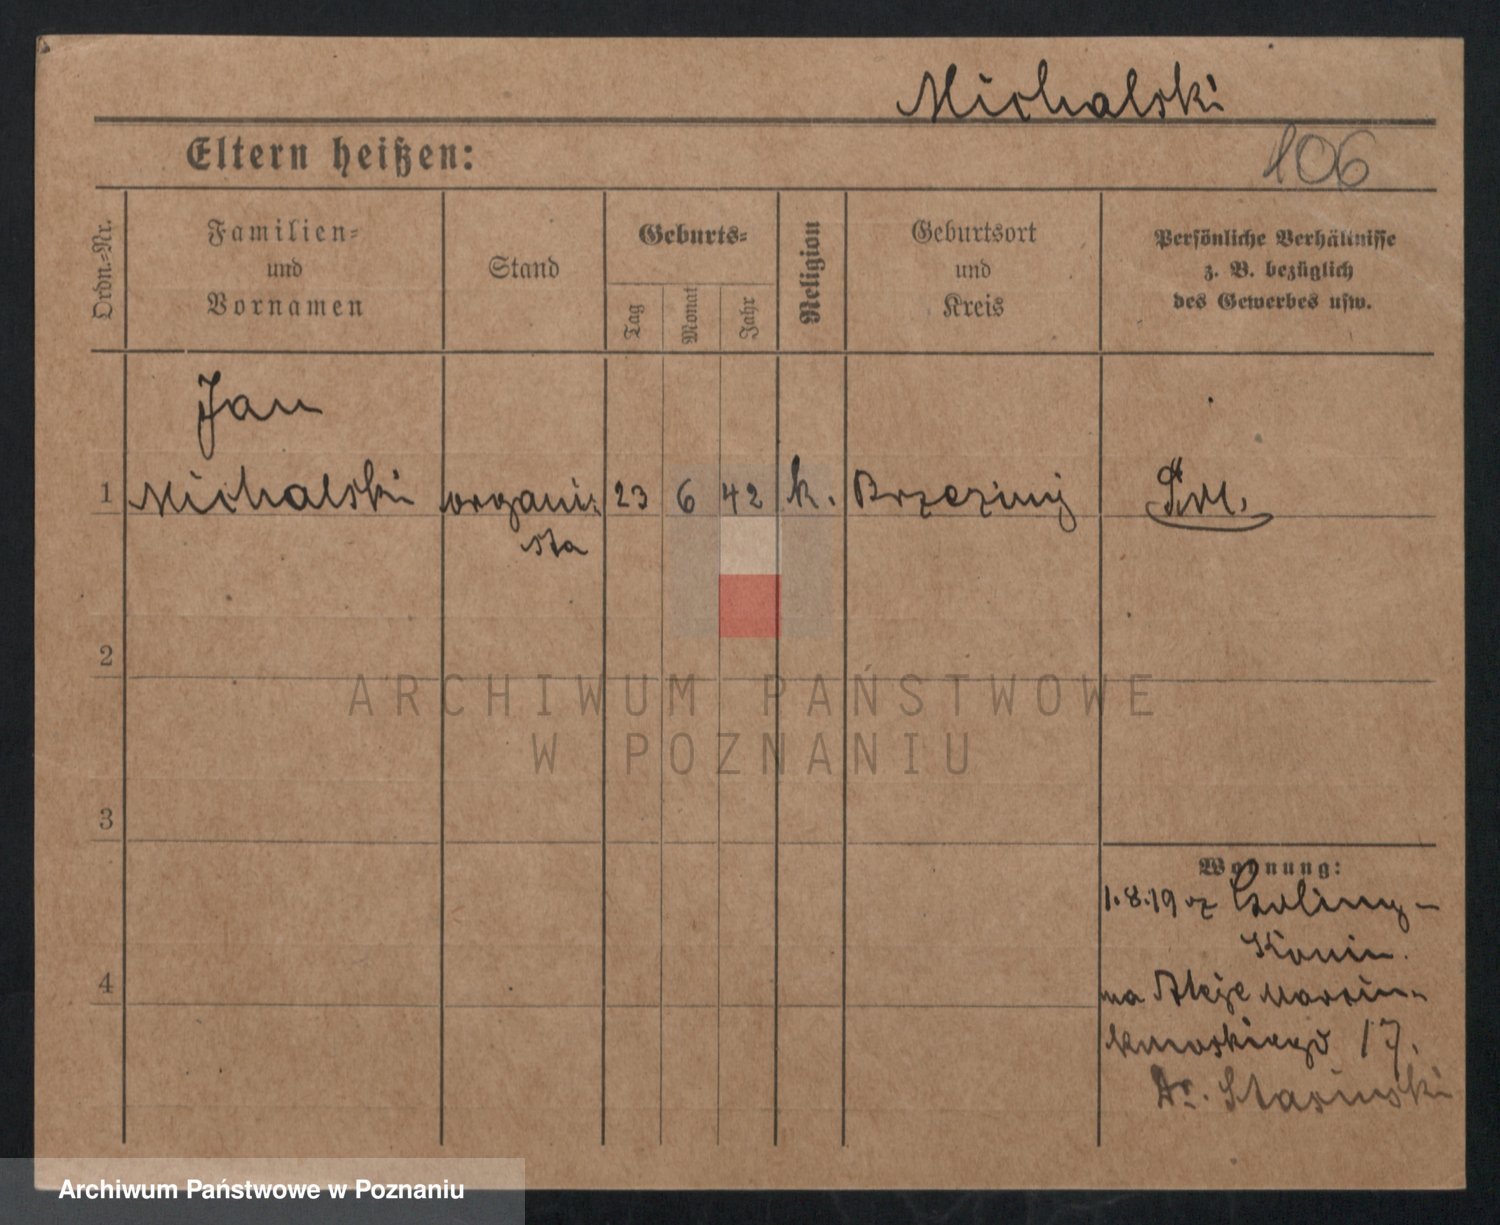 Michalski
Eltern heißen:
106
Ordn.-Nr.
Familien-
und
Vornamen
Stand
Geburts-
Tag
Monat
Jahr
Religion
Geburtsort
und
Kreis
Persönliche Verhältnisse
z. B. bezüglich
des Gewerbes usw.
Jan
1 Michalski organi- 23 6 42 k. Brzeziny
sta
2
ARCHIWUM PAŃSTWOWE
W POZNANIU
3
Wohnung:
1.8.19 z Goliny-
Konin.
4
na Aleje Marcin-
kowskiego 17.
Dr. Stasiński
Archiwum Państwowe w Poznaniu